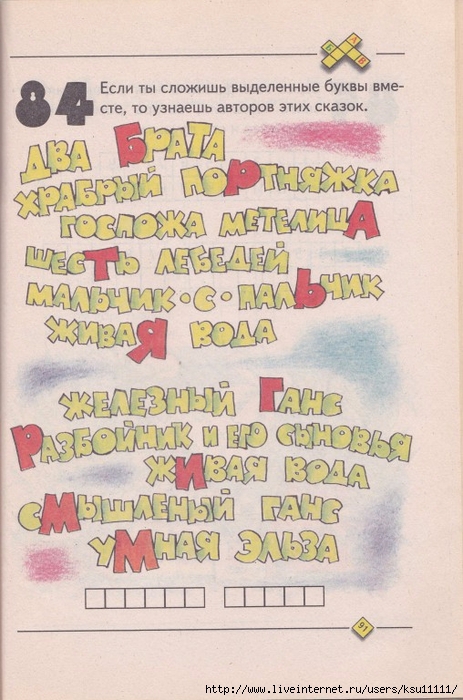 Б А В
84
Если ты сложишь выделенные буквы вме-
сте, то узнаешь авторов этих сказок.
ДВА БРАТА
ХРАБРЫЙ ПОРТНЯЖКА
ГОСПОЖА МЕТЕЛИЦА
ШЕСТЬ ЛЕБЕДЕЙ
МАЛЬЧИК·С·ПАЛЬЧИК
ЖИВАЯ ВОДА
ЖЕЛЕЗНЫЙ ГАНС
РАЗБОЙНИК И ЕГО СЫНОВЬЯ
ЖИВАЯ ВОДА
СМЫШЛЕНЫЙ ГАНС
УМНАЯ ЭЛЬЗА
91
http://www.liveinternet.ru/users/ksu11111/